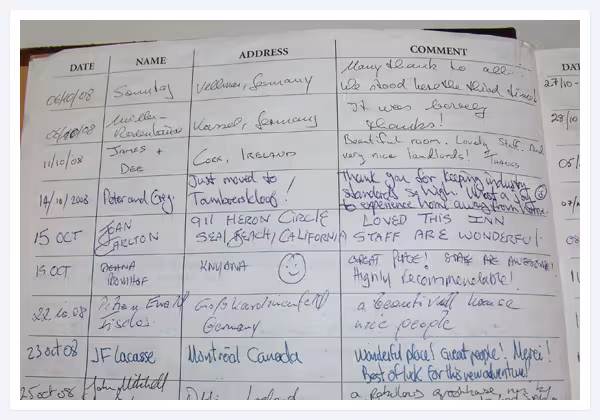 DATE NAME ADDRESS COMMENT
06/10/08 Sonntag Vellmar, Germany Many thank to all
We stood here the third time!
05/10/08 Kassel, Germany It was lovely
thanks!
11/10/08 James + Dee Cork, IRELAND Beautiful room. Lovely Staff. And
very nice landlords! Thanks
14/10/2008 Peter and Greg Just moved to Tamboerskloof! Thank you for keeping industry
standards so high! What a joy
to experience home away from home.
15 OCT JEAN CARLTON 911 HERON CIRCLE LOVED THIS INN
SEAL BEACH, CALIFORNIA STAFF ARE WONDERFUL
15 OCT KNYSNA GREAT PLACE! STAFF ARE AWESOME!
Highly recommendable!
22.10.08 Germany a beautifull house
nice people
23 oct 08 JF Lacasse Montréal Canada Wonderful place! Great people! Merci!
Best of luck for this new adventure!
25 oct 08 John Mitchell a
DAT
27/10-
29/10
05/
07/